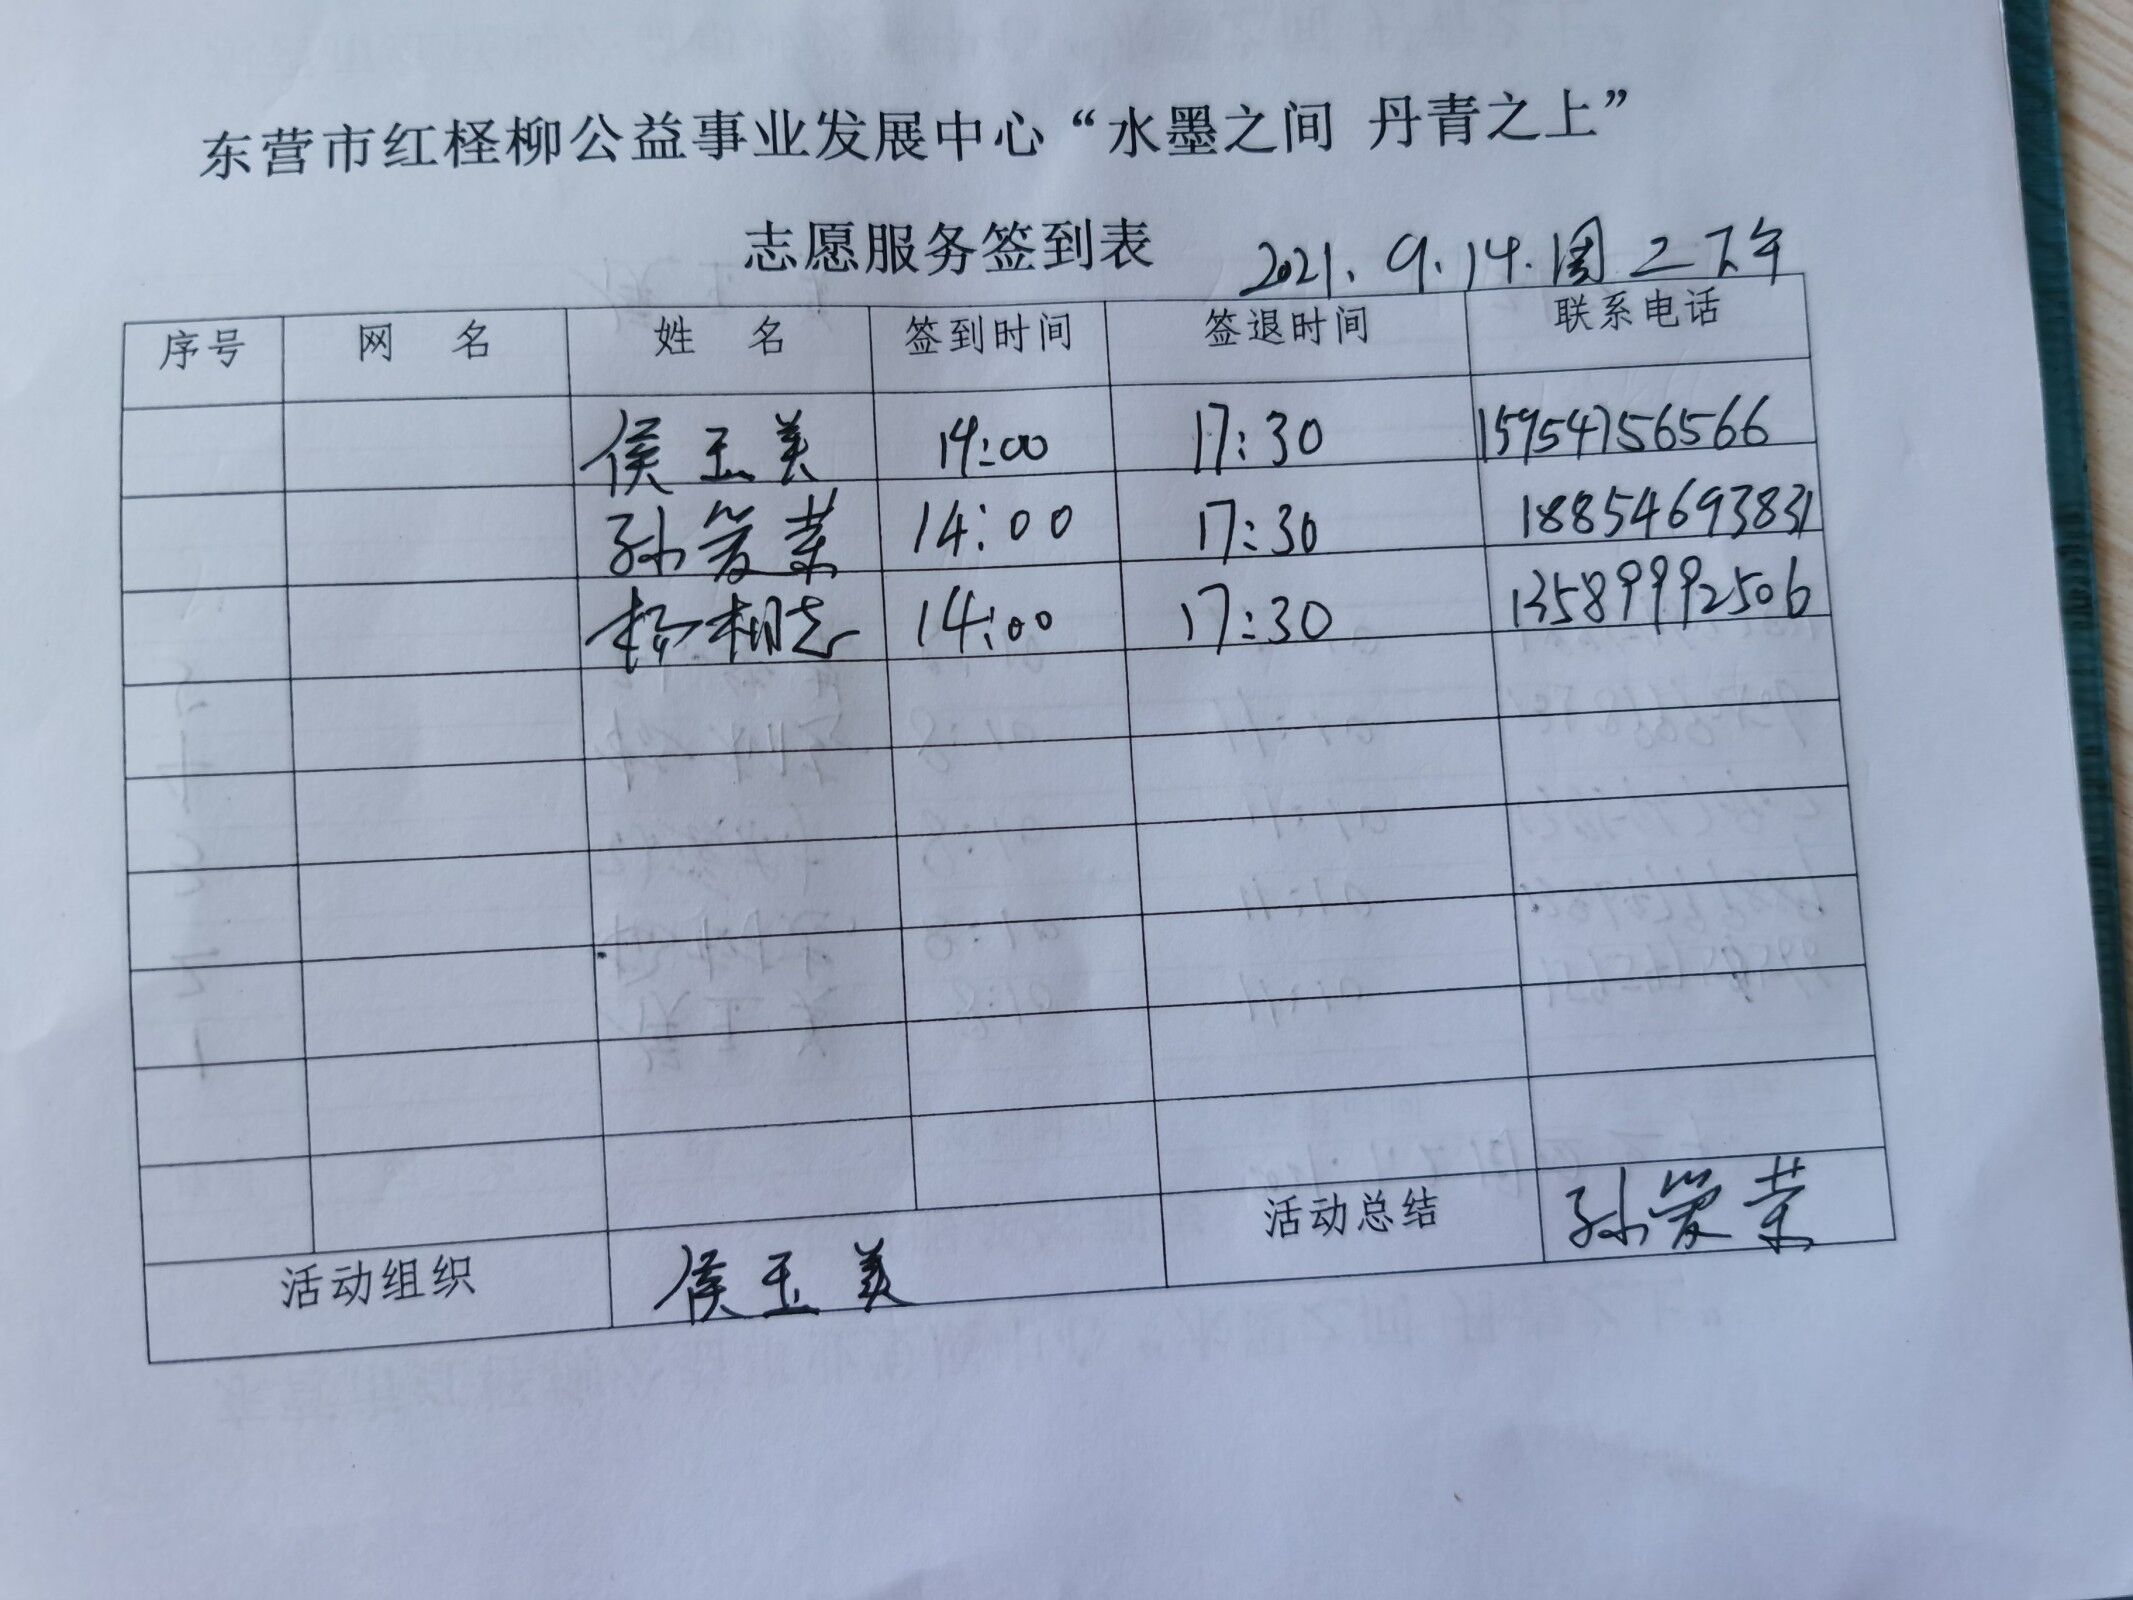 东营市红柽柳公益事业发展中心“水墨之间 丹青之上”
志愿服务签到表 2021.9.14.周二下午
序号 网 名 姓 名 签到时间 签退时间 联系电话
侯玉美 14:00 17:30 15954756566
孙爱荣 14:00 17:30 18854693831
杨相志 14:00 17:30 13589992506
活动组织 侯玉美 活动总结 孙爱荣